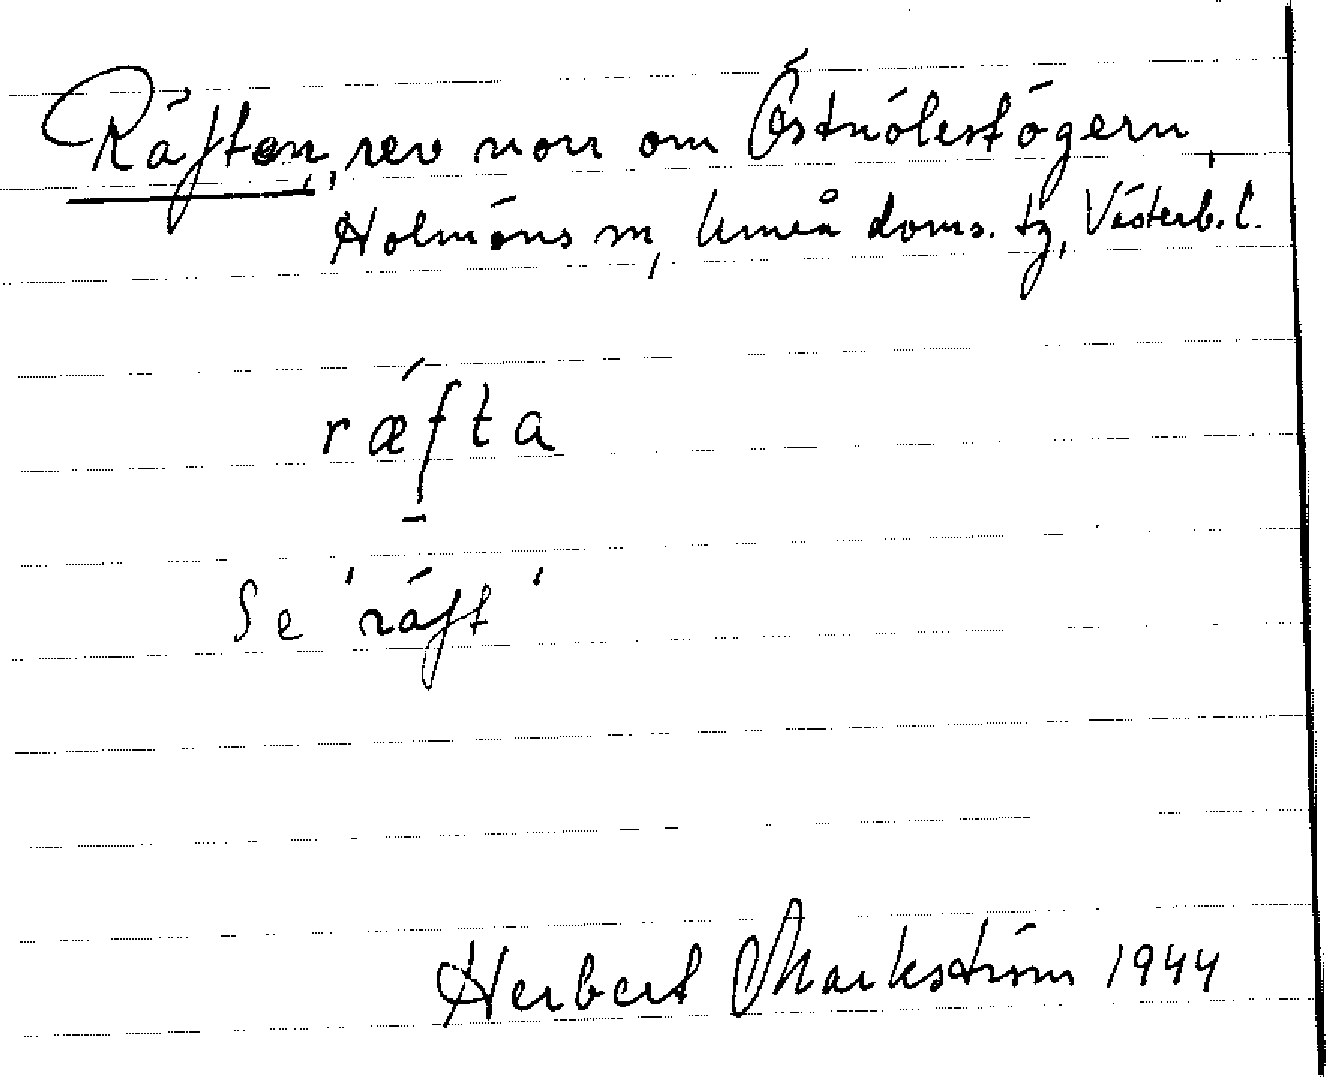 Räften, rev norr om Östnölestögern,
Holmöns sn, Umeå doms. tg, Västerb. l.
ræfta
Se 'räft'
Herbert Markström 1944